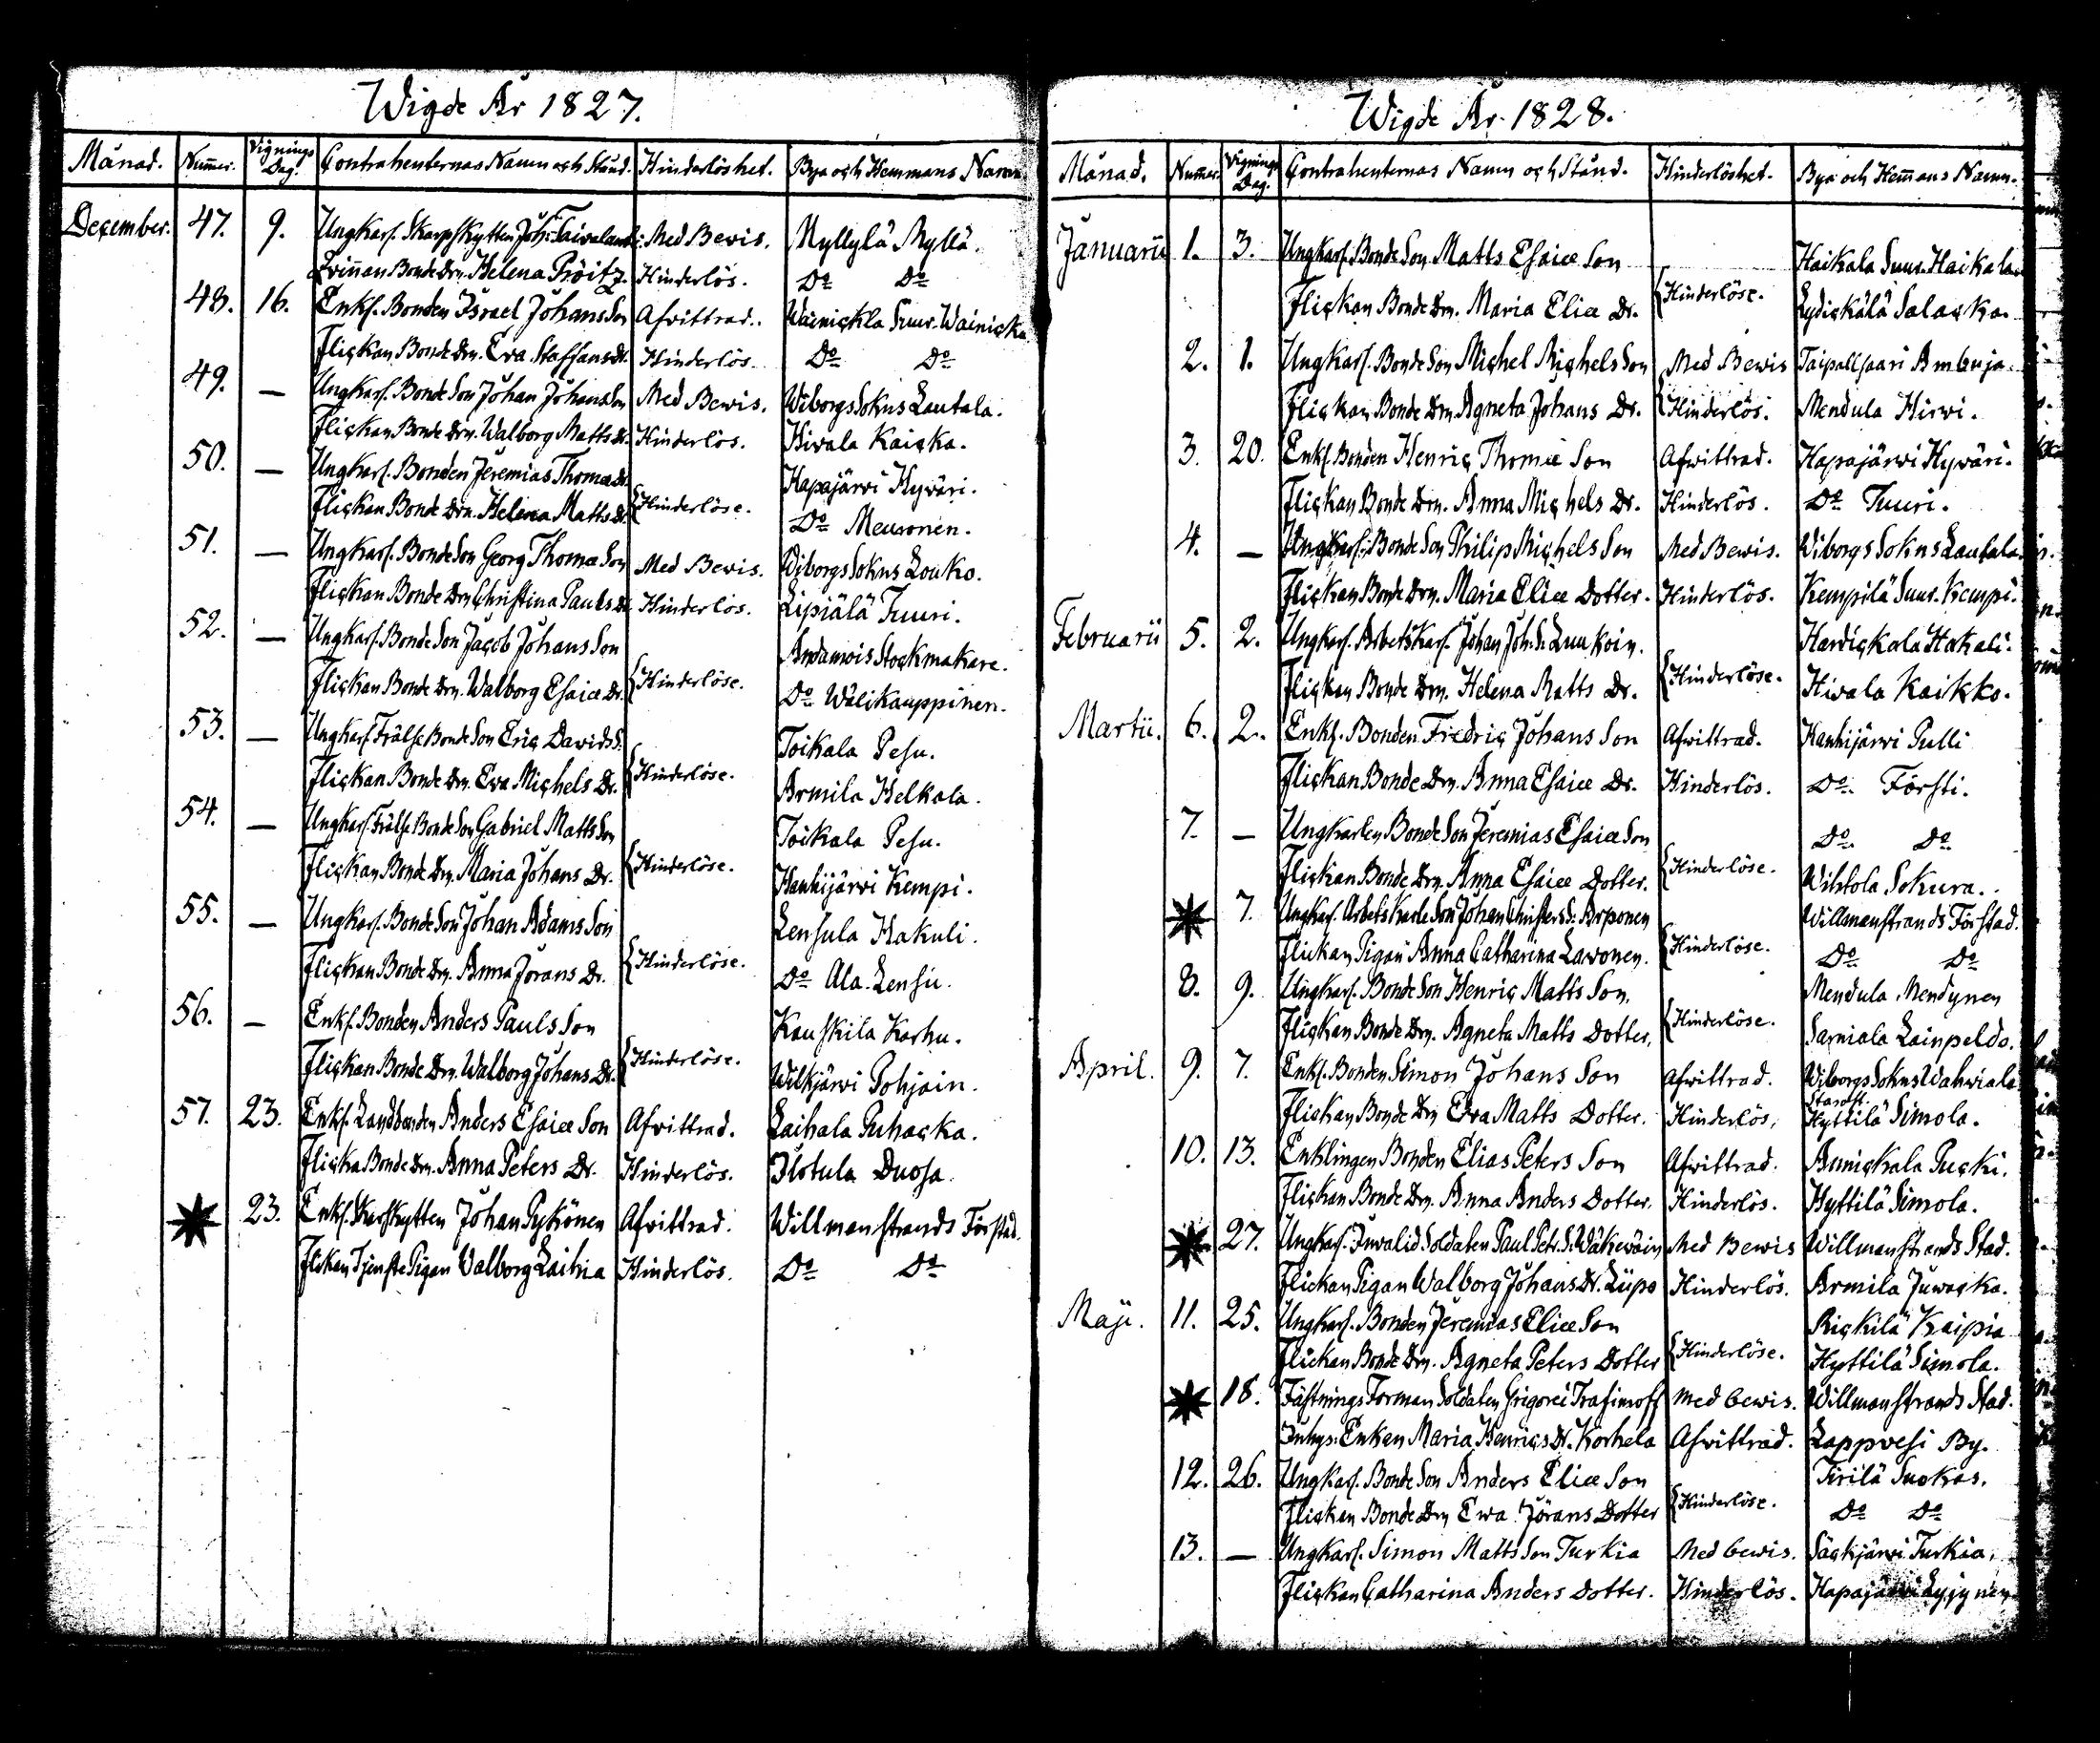 Wigde År 1827.
Månad. Numer. Vignings Dag. Contrahenternas Namn och Stånd. Hinderlöshet. Bya och Hemmans Namn.
December. 47. 9. Ungkarl. Skarpskytten Joh: Taivaland: Med Bewis. Myllylä Myllä.
Qvinnan Bonde Drn. Helena Pröitz. Hinderlös. Do Do
48. 16. Enkl. Bonden Israel Johans Son Afvittrad. Wainickla Suur-Wainicka
Flickan Bonde Drn. Eva Staffans Dr. Hinderlös. Do Do
49. — Ungkarl. Bonde Son Johan Johans Son Med Bewis. Wiborgs Sokns Lautala.
Flickan Bonde Drn. Walborg Matts Dr. Hinderlös. Hivala Kaicka.
50. — Ungkarl. Bonden Jeremias Thomæ Hapajärvi Hyväri.
Flickan Bonde Drn. Helena Matts Dr. {Hinderlöse. Do Meuronen.
51. — Ungkarl. Bonde Son Georg Thomæ Son Med Bewis. Wiborgs Sokns Louko.
Flickan Bonde Drn Christina Pauls Dr. Hinderlös. Lipiälä Tuuri.
52. — Ungkarl. Bonde Son Jacob Johans Son Andamois Stockmakare.
Flickan Bonde Drn. Walborg Esaiæ Dr. {Hinderlöse. Do Wälikauppinen.
53. — Ungkarl Frälse Bonde Son Eric Davids S. Toikala Pesu.
Flickan Bonde Drn. Eva Michels Dr. {Hinderlöse. Armila Helkala.
54. — Ungkarl. Frälse Bonde Son Gabriel Matts Son Toikala Pesu.
Flickan Bonde Drn. Maria Johans Dr. {Hinderlöse. Hanhijärvi Kempi.
55. — Ungkarl. Bonde Son Johan Adams Son Lensula Hakuli.
Flickan Bonde Drn. Anna Jörans Dr. {Hinderlöse. Do Ala-Lensu.
56. — Enkl. Bonden Anders Pauls Son Kauskila Karhu.
Flickan Bonde Drn. Walborg Johans Dr. {Hinderlöse. Wilkjärvi Pohjain.
57. 23. Enkl. Landbonden Anders Esaiæ Son Afvittrad. Laihala Puhacka.
Flicka Bonde Drn. Anna Peters Dr. Hinderlös. Ilotula Duosa.
23. Enkl. Skarskytten Johan Pykönen Afvittrad. Willmanstrands Förstad.
Flickan Tjenste Pigan Walborg Laihia Hinderlös. Do Do
Wigde År 1828.
Månad. Numer. Vignings Dag. Contrahenternas Namn och Stånd. Hinderlöshet. Bya och Hemans Namn.
Januarii 1. 3. Ungkarl. Bonde Son Matts Esaiæ Son Haikala Suur-Haikala
Flickan Bonde Drn. Maria Eliæ Dr. {Hinderlöse. Lydickälä Salacka.
2. 1. Ungkarl. Bonde Son Michel Michels Son Med Bewis Taipallsaari Ambuja.
Flickan Bonde Drn. Agneta Johans Dr. {Hinderlös. Mendula Hirwi.
3. 20. Enkl. Bonden Henric Thomæ Son Afvittrad. Hapajärwi Hyväri.
Flickan Bonde Drn. Anna Michels Dr. Hinderlös. Do Tuuri.
4. — Ungkarl. Bonde Son Philip Michels Son Med Bewis. Wiborgs Sokns Lautala
Flickan Bonde Drn. Maria Eliæ Dotter. Hinderlös. Kempilä Suur-Kempi.
Februarii 5. 2. Ungkarl. Arbetskarl. Johan Joh: S: Luukoin. Hardickala Hakali.
Flickan Bonde Drn. Helena Matts Dr. {Hinderlöse. Hivala Kaikko.
Martii. 6. 2. Enkl. Bonden Fredric Johans Son Afvittrad. Hanhijärvi Pulli
Flickan Bonde Drn. Anna Esaiæ Dr. Hinderlös. Do Försti.
7. — Ungkarlen Bonde Son Jeremias Esaiæ Son Do Do
Flickan Bonde Drn. Anna Esaiæ Dotter. {Hinderlöse. Wihtola Sokura.
7. Ungkarl. Arbets Karls Son Johan Christers S: Arponen Willmanstrands Förstad.
Flickan Pigan Anna Catharina Lavonen. {Hinderlöse. Do Do
8. 9. Ungkarl. Bonde Son Henric Matts Son. Mendula Mendynen
Flickan Bonde Drn. Agneta Matts Dotter. {Hinderlöse. Sarniala Lainpelds.
April. 9. 7. Enkl. Bonden Simon Johans Son Afvittrad. Wiborgs Sokns Wahviala
Flickan Bonde Drn Eva Matts Dotter. Hinderlös. Hyttilä Simola.
10. 13. Enklingen Bonden Elias Peters Son Afvittrad. Annickala Pucki.
Flickan Bonde Drn. Anna Anders Dotter. Hinderlös. Hyttilä Simola.
27. Ungkarl. Invalid Soldaten Paul Petr. S: Wäkewäin Med Bewis Willmanstrands Stad.
Flickan Pigan Walborg Johans Dr. Liipo Hinderlös. Armila Juwacka.
Maji. 11. 25. Ungkarl. Bonden Jeremias Eliæ Son Rickilä Kaipia
Flickan Bonde Drn. Agneta Peters Dotter {Hinderlöse. Hyttilä Simola.
18. Fästnings Forman Soldaten Grigorei Trafimoff Med bewis. Willmanstrands Stad.
Inhys: Enkan Maria Henrics Dr. Korhela Afvittrad. Lappvesi By.
12. 26. Ungkarl. Bonde Son Anders Eliæ Son Tirilä Suokas.
Flickan Bonde Drn Ewa Jörans Dotter {Hinderlöse. Do Do
13. — Ungkarl. Simon Matts Son Turkia Med bewis. Säckjärvi Turkia.
Flickan Catharina Anders Dotter. Hinderlös. Hapajärwi